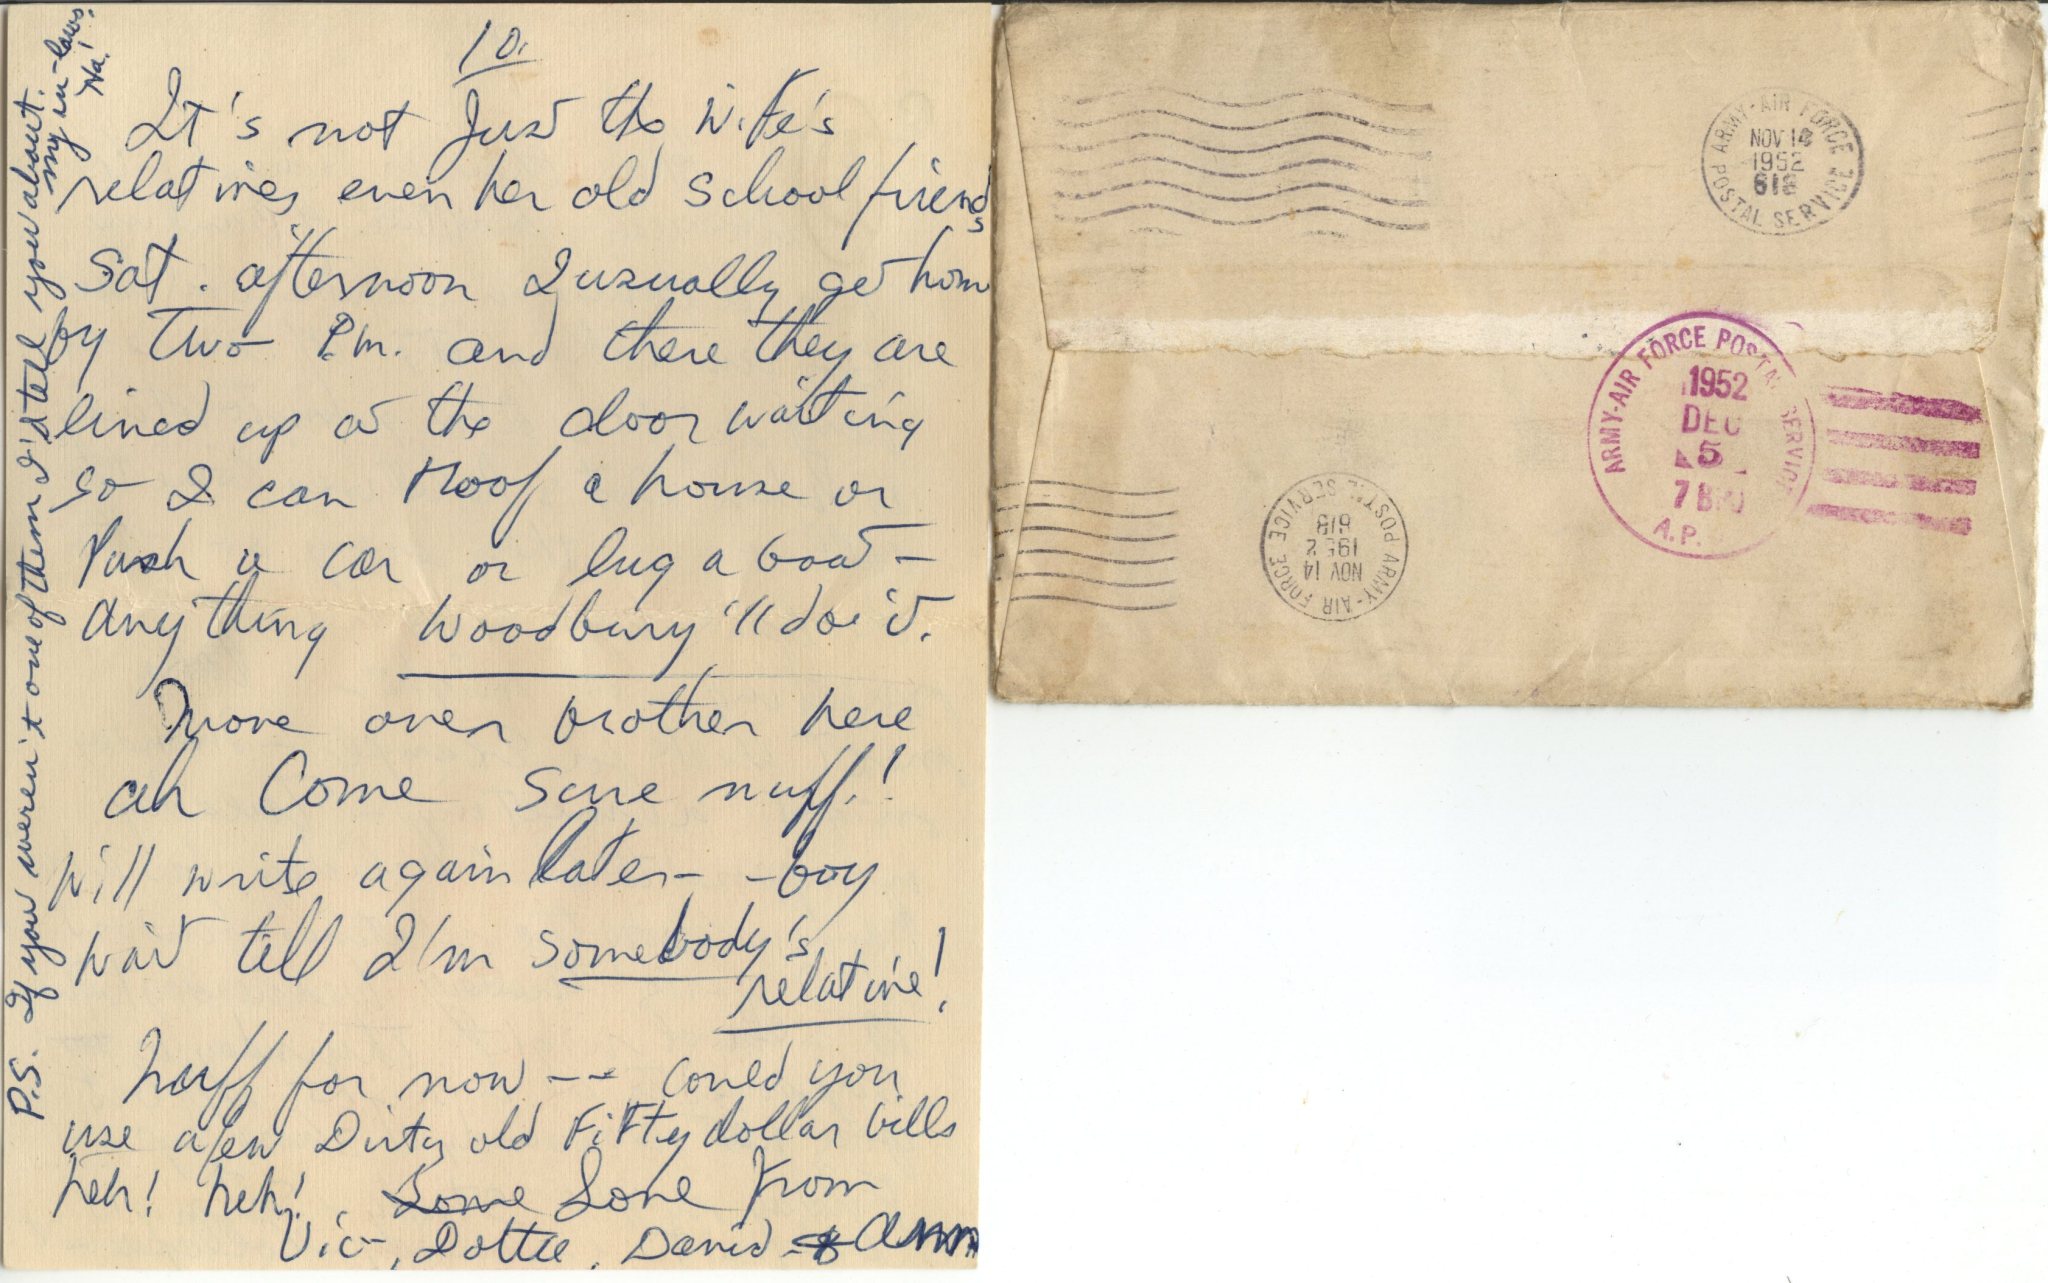 10.
It's not Just the Wife's
relatives even her old School friends
Sat. afternoon I usually get hom
by Two P.m. and there they are
lined up at the door waiting
so I can roof a house or
Push a car or lug a boat –
Anything Woodbury'll do it.
Move over brother here
ah Come Sure nuff!
Will write again later – – boy
wait till I'm somebody's
relative!
Nuff for now – – could you
use a few Dirty old Fifty dollar bills
heh! heh! Some Love From
Vic, Dottie, David & Ann
P.S. If you weren't one of them I'd tell you about
my in-laws.
Ha!
ARMY-AIR FORCE POSTAL SERVICE
NOV 14
1952
618
ARMY-AIR FORCE POSTAL SERVICE
1952
DEC
5
A.P.
ARMY-AIR FORCE POSTAL SERVICE
NOV 14
1952
618